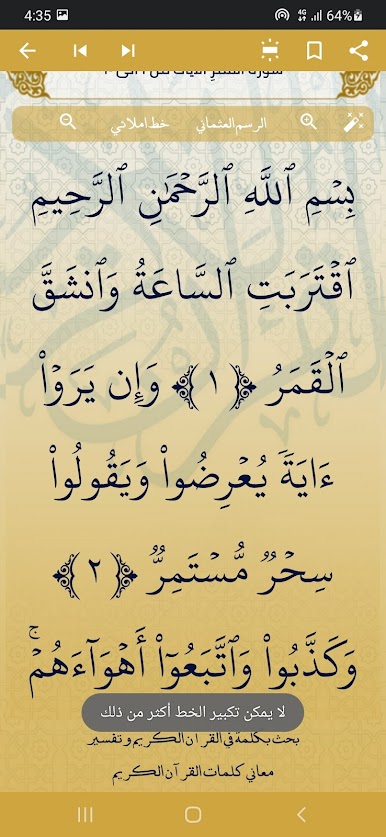 4:35
4G 64%
سورة القمر الآيات من ١ الى ٦
الرسم العثماني خط املائي
بِسۡمِ ٱللَّهِ ٱلرَّحۡمَٰنِ ٱلرَّحِيمِ
ٱقۡتَرَبَتِ ٱلسَّاعَةُ وَٱنشَقَّ
ٱلۡقَمَرُ ﴿١﴾ وَإِن يَرَوۡاْ
ءَايَةٗ يُعۡرِضُواْ وَيَقُولُواْ
سِحۡرٞ مُّسۡتَمِرّٞ ﴿٢﴾
وَكَذَّبُواْ وَٱتَّبَعُوٓاْ أَهۡوَآءَهُمۡۚ
لا يمكن تكبير الخط أكثر من ذلك
بحث بكلمة في القرآن الكريم وتفسير
معاني كلمات القرآن الكريم